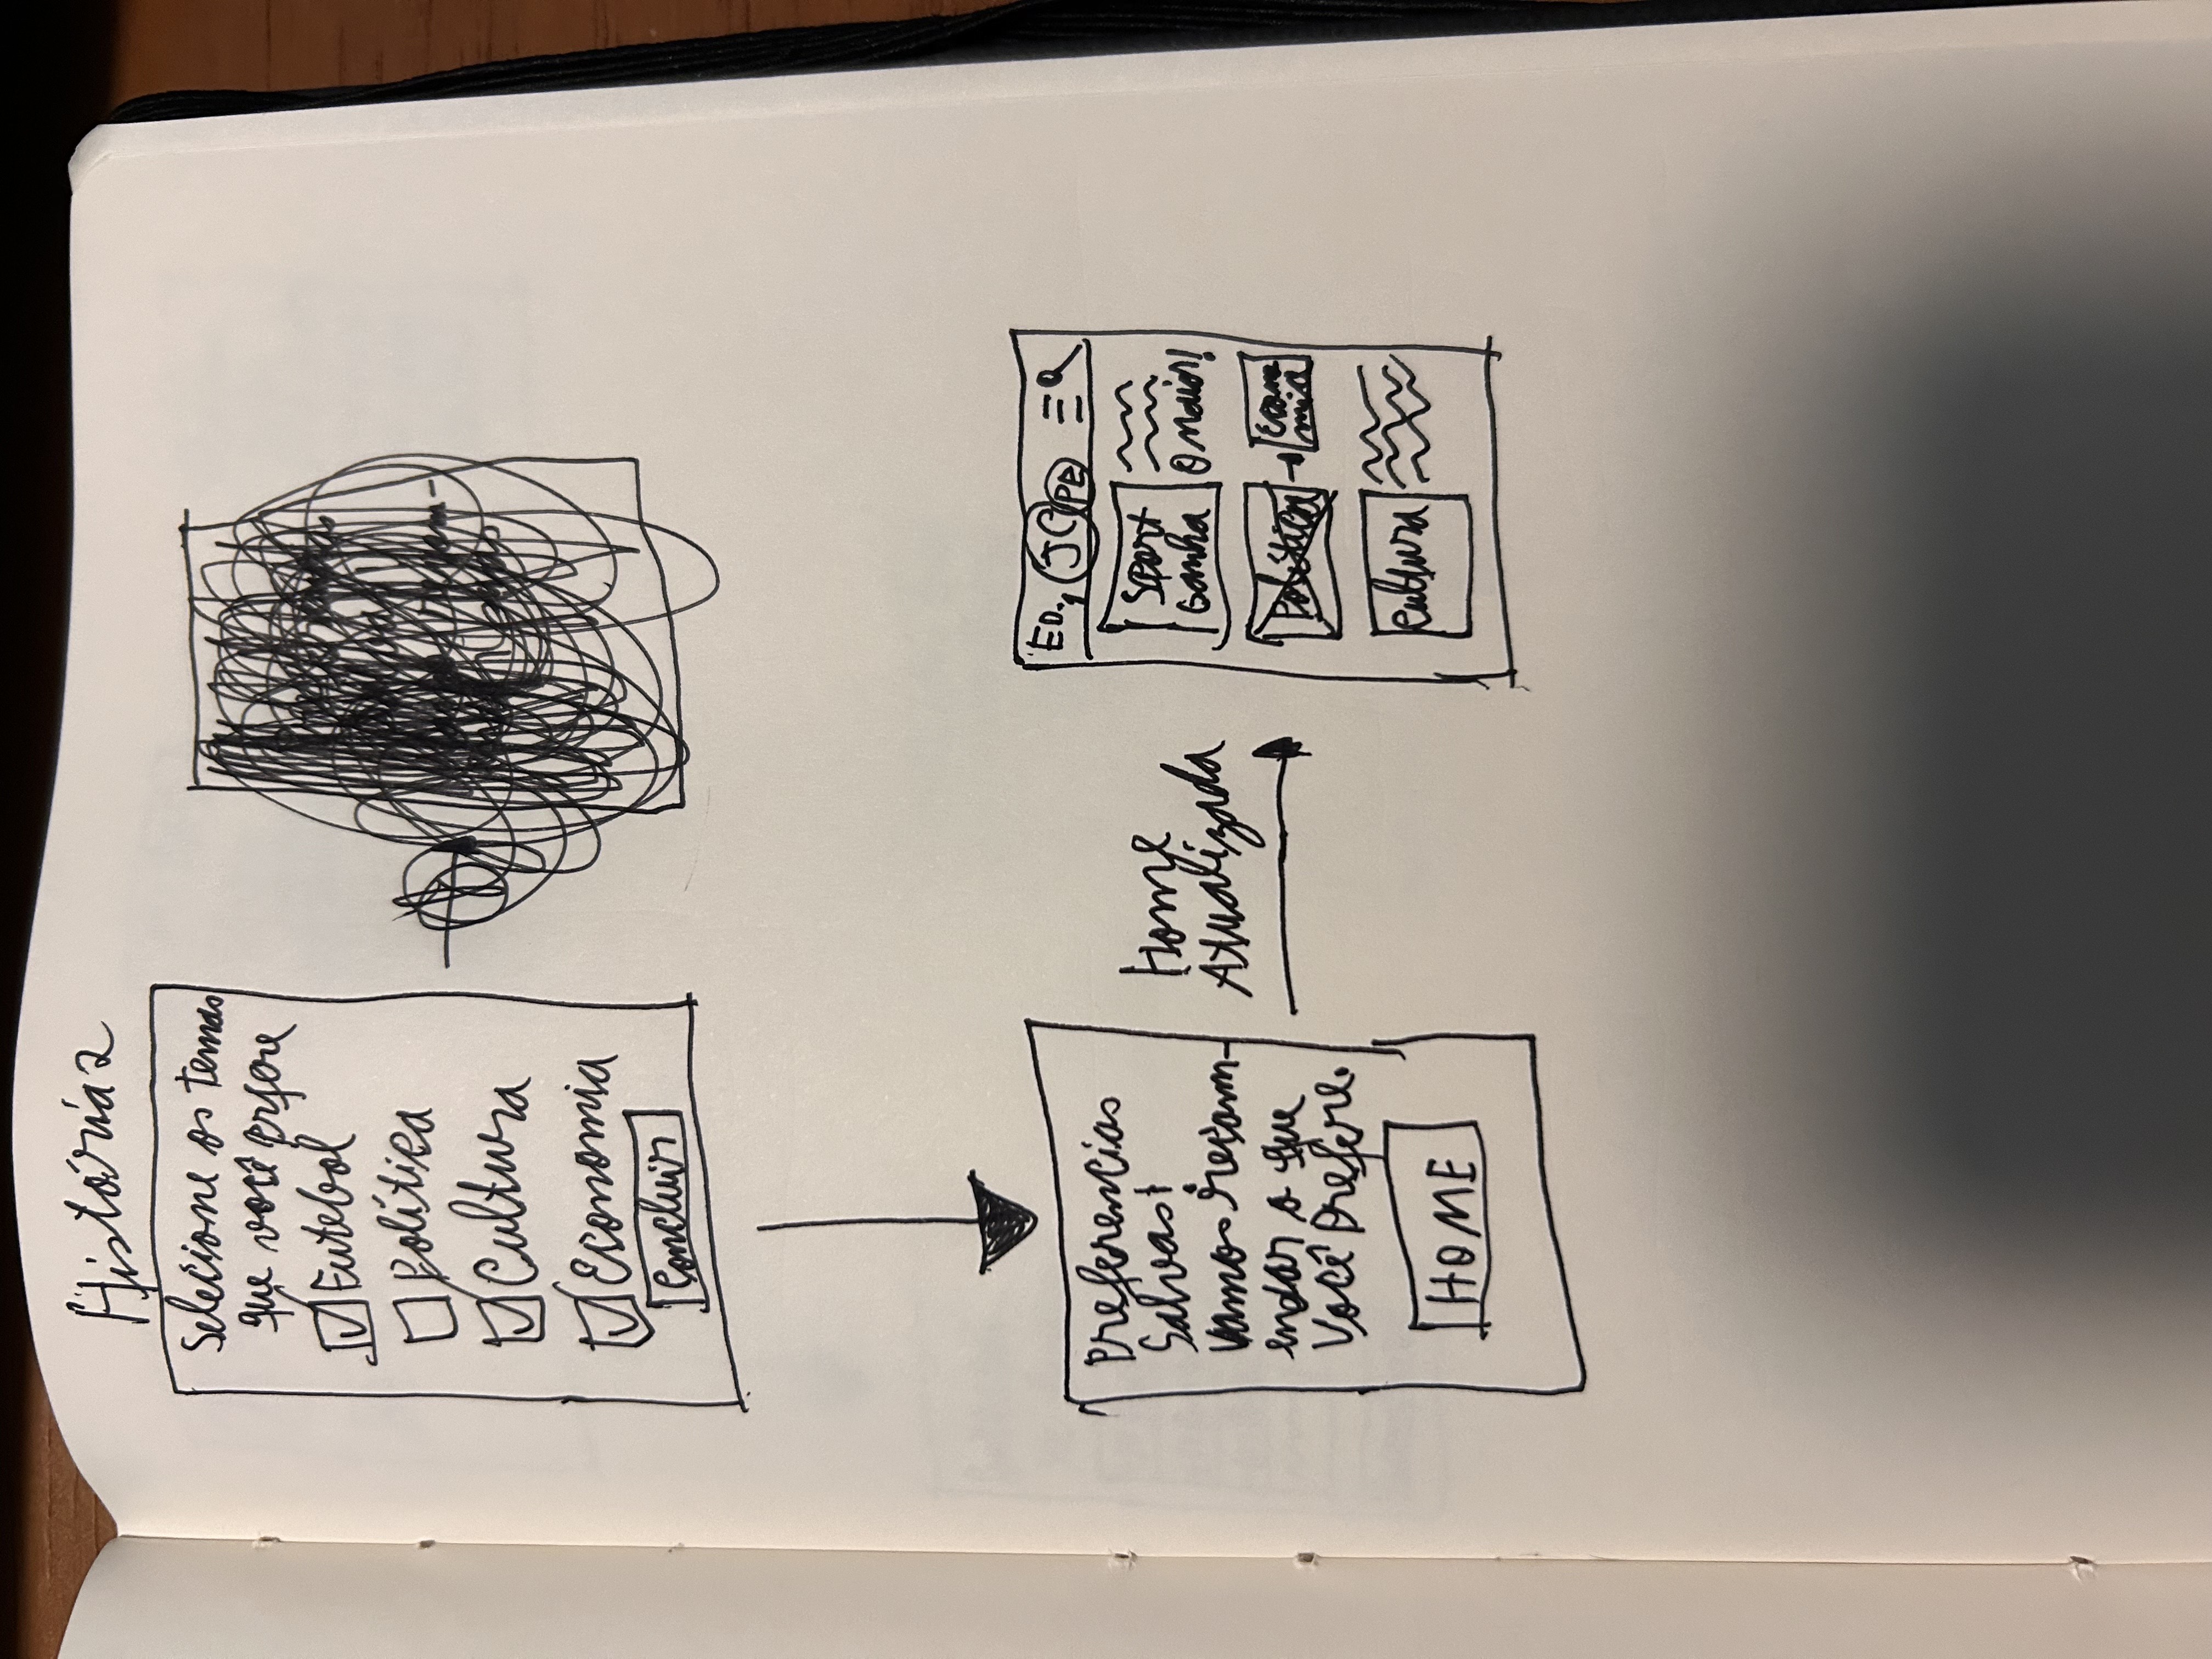 História 2
Selecione os temas
que você prfere
Futebol
Política
Cultura
Economia
Concluir
Preferencias
Salvas!
Vamos recom-
endar o que
Você Prefere.
HOME
Home
Atualizada
ED. JC PE
Sport
Ganha
O maior!
Política
Econo
mia
Cultura